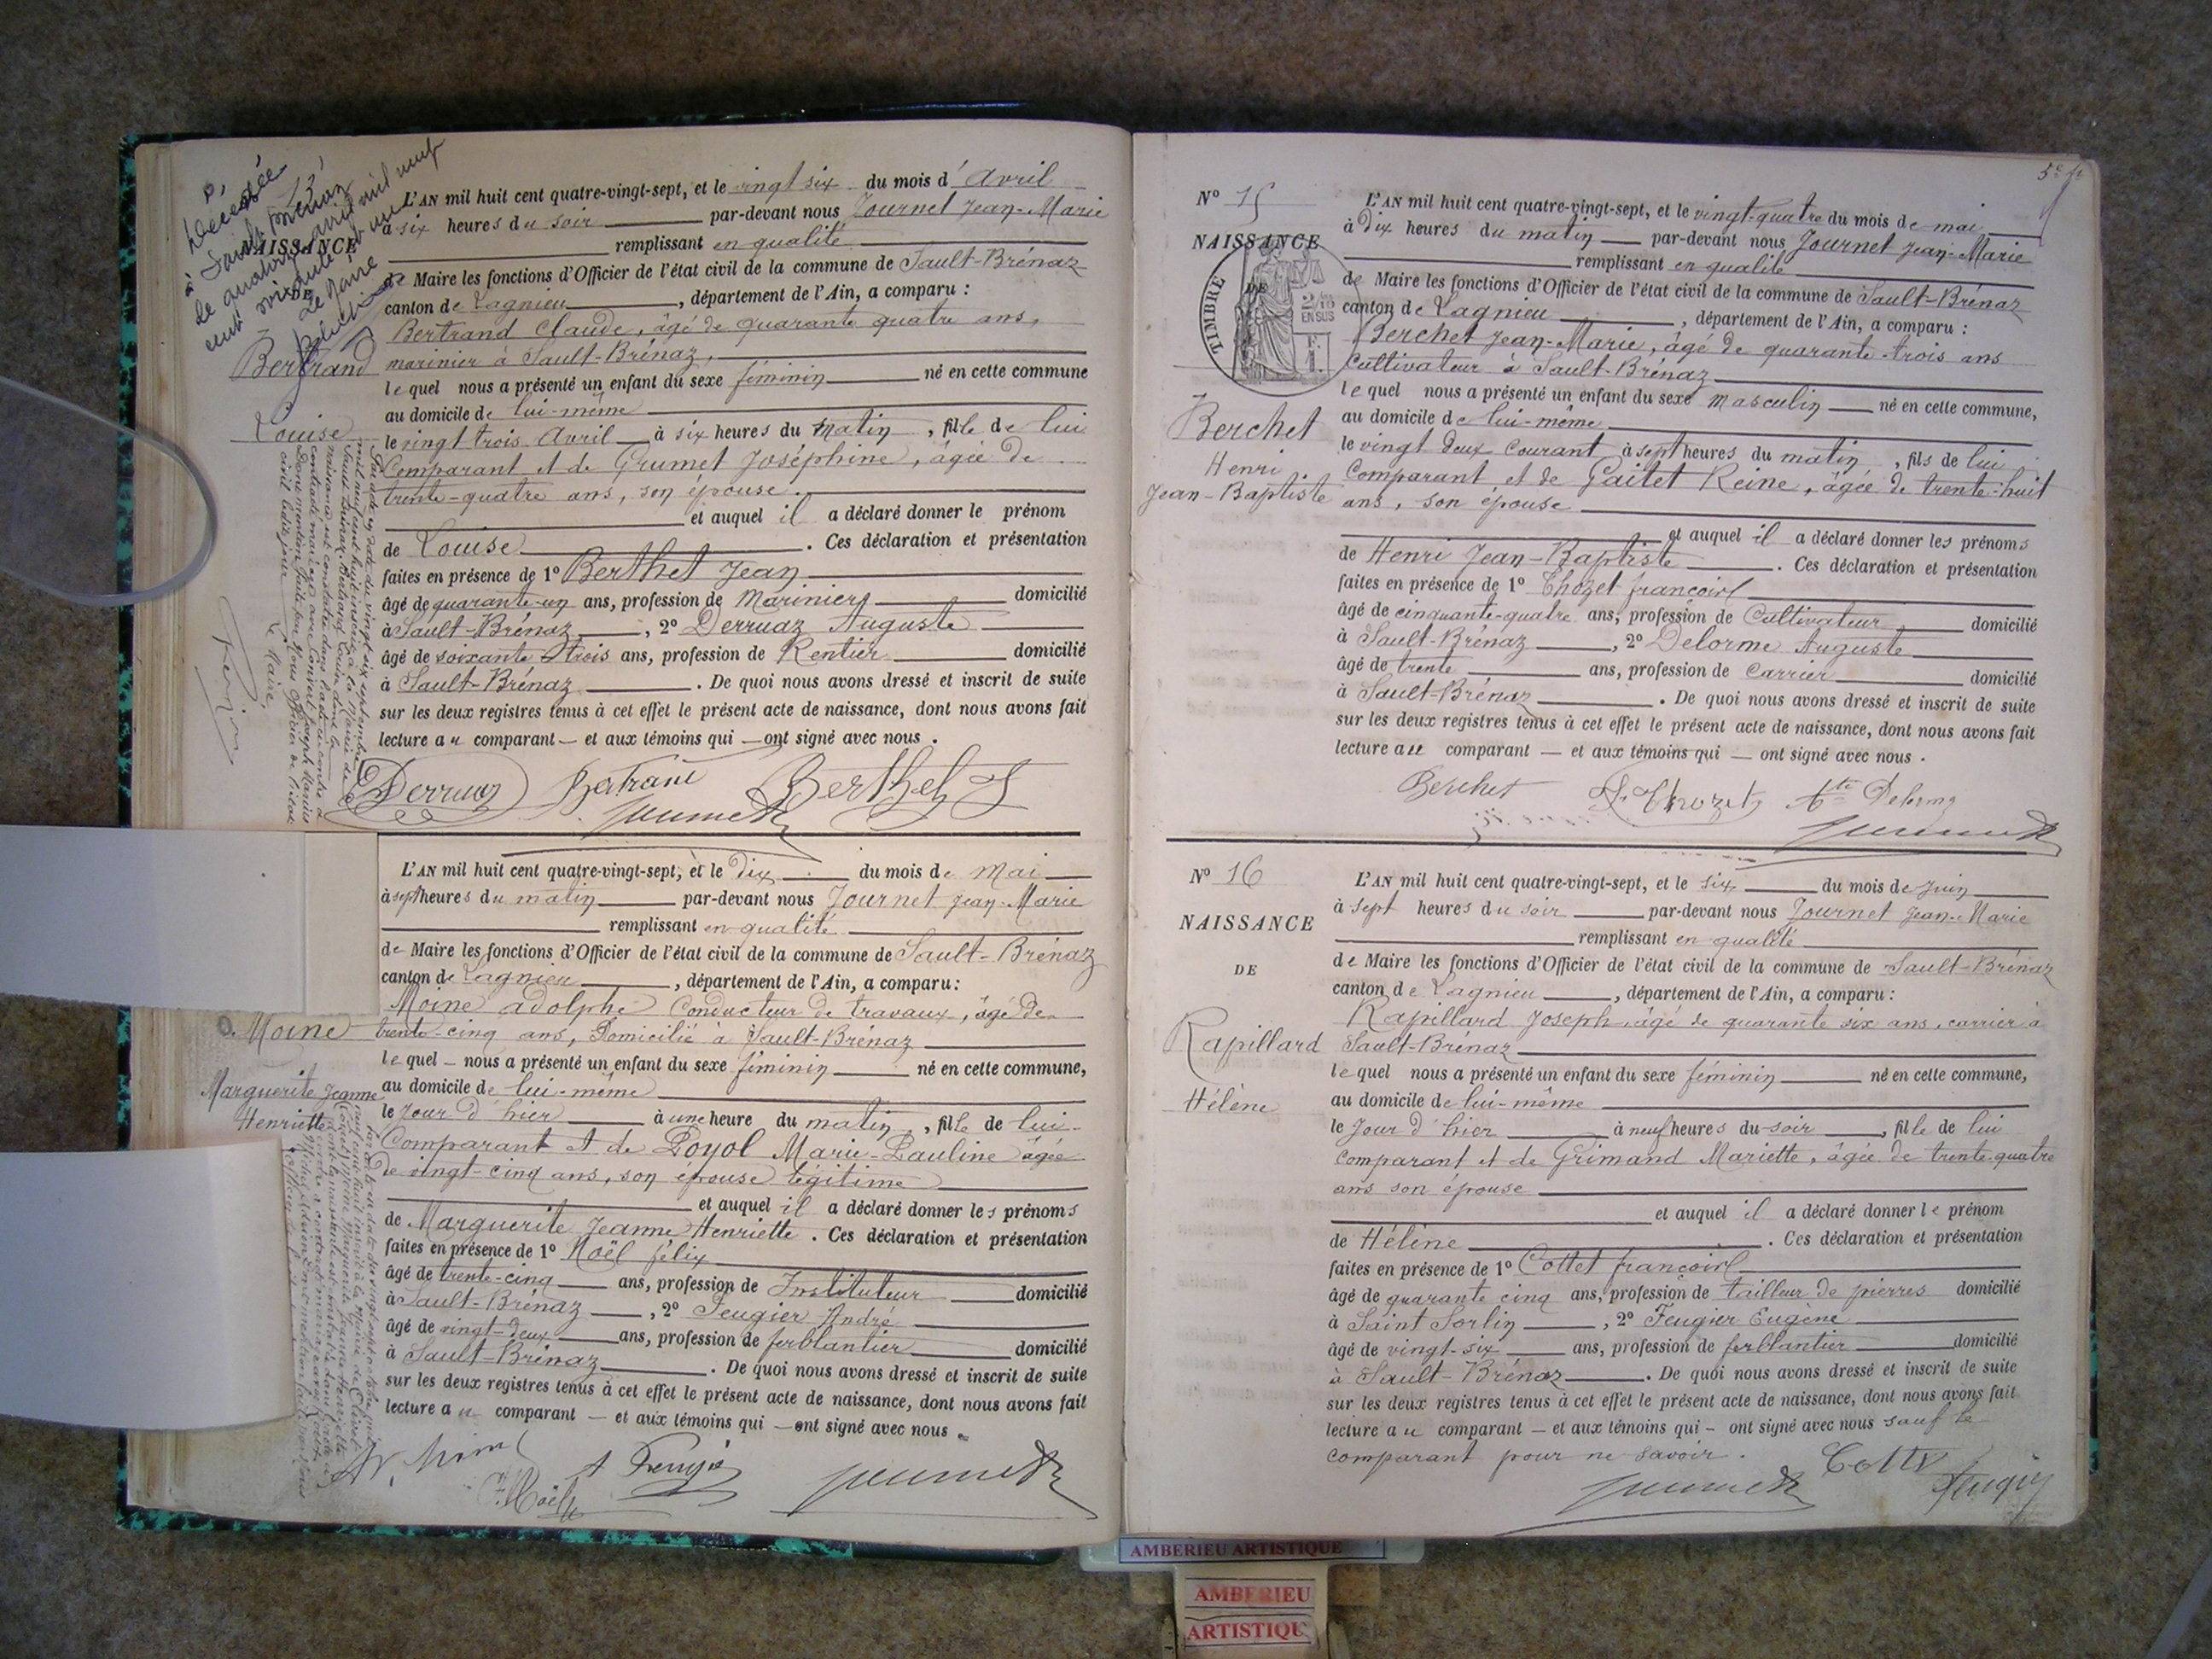 Décédée
13
NAISSANCE
DE
Bertrand
Louise
L'AN mil huit cent quatre-vingt-sept, et le vingt six du mois d' Avril
à six heures du soir par-devant nous Journet Jean-Marie
remplissant en qualité
de Maire les fonctions d'Officier de l'état civil de la commune de Sault-Brénaz
canton de Lagnieu, département de l'Ain, a comparu :
Bertrand Claude, âgé de quarante quatre ans,
marinier à Sault-Brénaz,
lequel nous a présenté un enfant du sexe féminin né en cette commune
au domicile de lui-même
le vingt trois Avril à six heures du matin, fille de lui
Comparant et de Grumet Joséphine, âgée de
trente-quatre ans, son épouse.
et auquel il a déclaré donner le prénom
de Louise. Ces déclaration et présentation
faites en présence de 1° Berthet Jean
âgé de quarante-un ans, profession de Marinier domicilié
à Sault-Brénaz, 2° Derruaz Auguste
âgé de soixante-trois ans, profession de Rentier domicilié
à Sault-Brénaz. De quoi nous avons dressé et inscrit de suite
sur les deux registres tenus à cet effet le présent acte de naissance, dont nous avons fait
lecture au comparant — et aux témoins qui — ont signé avec nous.
Derruaz Bertrand Berthet J
Journet
Moine
Marguerite Jeanne
Henriette
L'AN mil huit cent quatre-vingt-sept, et le dix du mois de mai
à sept heures du matin par-devant nous Journet Jean-Marie
remplissant en qualité
de Maire les fonctions d'Officier de l'état civil de la commune de Sault-Brénaz
canton de Lagnieu, département de l'Ain, a comparu :
Moine adolphe Conducteur de travaux, âgé de
trente-cinq ans, Domicilié à Sault-Brénaz
lequel — nous a présenté un enfant du sexe féminin né en cette commune,
au domicile de lui-même
le Jour d'hier à une heure du matin, fille de lui
Comparant et de Poyol Marie-Pauline âgée
de vingt-cinq ans, son épouse légitime
et auquel il a déclaré donner les prénoms
de Marguerite Jeanne Henriette. Ces déclaration et présentation
faites en présence de 1° Noël félix
âgé de trente-cinq ans, profession de Instituteur domicilié
à Sault-Brénaz, 2° Feugier André
âgé de vingt-deux ans, profession de ferblantier domicilié
à Sault-Brénaz. De quoi nous avons dressé et inscrit de suite
sur les deux registres tenus à cet effet le présent acte de naissance, dont nous avons fait
lecture au comparant — et aux témoins qui — ont signé avec nous.
A. Moine A Feugier Journet
F. Noël
N° 15
NAISSANCE
DE
TIMBRE
2/10 EN SUS
Berchet
Henri
Jean-Baptiste
L'AN mil huit cent quatre-vingt-sept, et le vingt-quatre du mois de mai
à Dix heures du matin par-devant nous Journet Jean-Marie
remplissant en qualité
de Maire les fonctions d'Officier de l'état civil de la commune de Sault-Brénaz
canton de Lagnieu, département de l'Ain, a comparu :
Berchet Jean-Marie, âgé de quarante-trois ans
Cultivateur à Sault-Brénaz
lequel nous a présenté un enfant du sexe masculin né en cette commune,
au domicile de lui-même
le vingt deux Courant à sept heures du matin, fils de lui
Comparant et de Gaitet Reine, âgée de trente-huit
ans, son épouse
et auquel il a déclaré donner les prénoms
de Henri Jean-Baptiste. Ces déclaration et présentation
faites en présence de 1° Chozet françois
âgé de cinquante-quatre ans, profession de Cultivateur domicilié
à Sault-Brénaz, 2° Delorme Auguste
âgé de trente ans, profession de Carrier domicilié
à Sault-Brénaz. De quoi nous avons dressé et inscrit de suite
sur les deux registres tenus à cet effet le présent acte de naissance, dont nous avons fait
lecture au comparant — et aux témoins qui — ont signé avec nous.
Berchet Chozet Delorme
Journet
N° 16
NAISSANCE
DE
Rapillard
Hélène
L'AN mil huit cent quatre-vingt-sept, et le six du mois de Juin
à sept heures du soir par-devant nous Journet Jean-Marie
remplissant en qualité
de Maire les fonctions d'Officier de l'état civil de la commune de Sault-Brénaz
canton de Lagnieu, département de l'Ain, a comparu :
Rapillard Joseph, âgé de quarante six ans, carrier à
Sault-Brénaz
lequel nous a présenté un enfant du sexe féminin né en cette commune,
au domicile de lui-même
le Jour d'hier à neuf heures du soir, fille de lui
comparant et de Grimand Mariette, âgée de trente-quatre
ans son épouse
et auquel il a déclaré donner le prénom
de Hélène. Ces déclaration et présentation
faites en présence de 1° Cottet françois
âgé de quarante cinq ans, profession de tailleur de pierres domicilié
à Saint Sorlin, 2° Feugier Eugène
âgé de vingt-six ans, profession de ferblantier domicilié
à Sault-Brénaz. De quoi nous avons dressé et inscrit de suite
sur les deux registres tenus à cet effet le présent acte de naissance, dont nous avons fait
lecture au comparant — et aux témoins qui — ont signé avec nous sauf le
comparant pour ne savoir.
Cottet
Journet Feugier
AMBERIEU ARTISTIQUE
AMBERIEU
ARTISTIQU